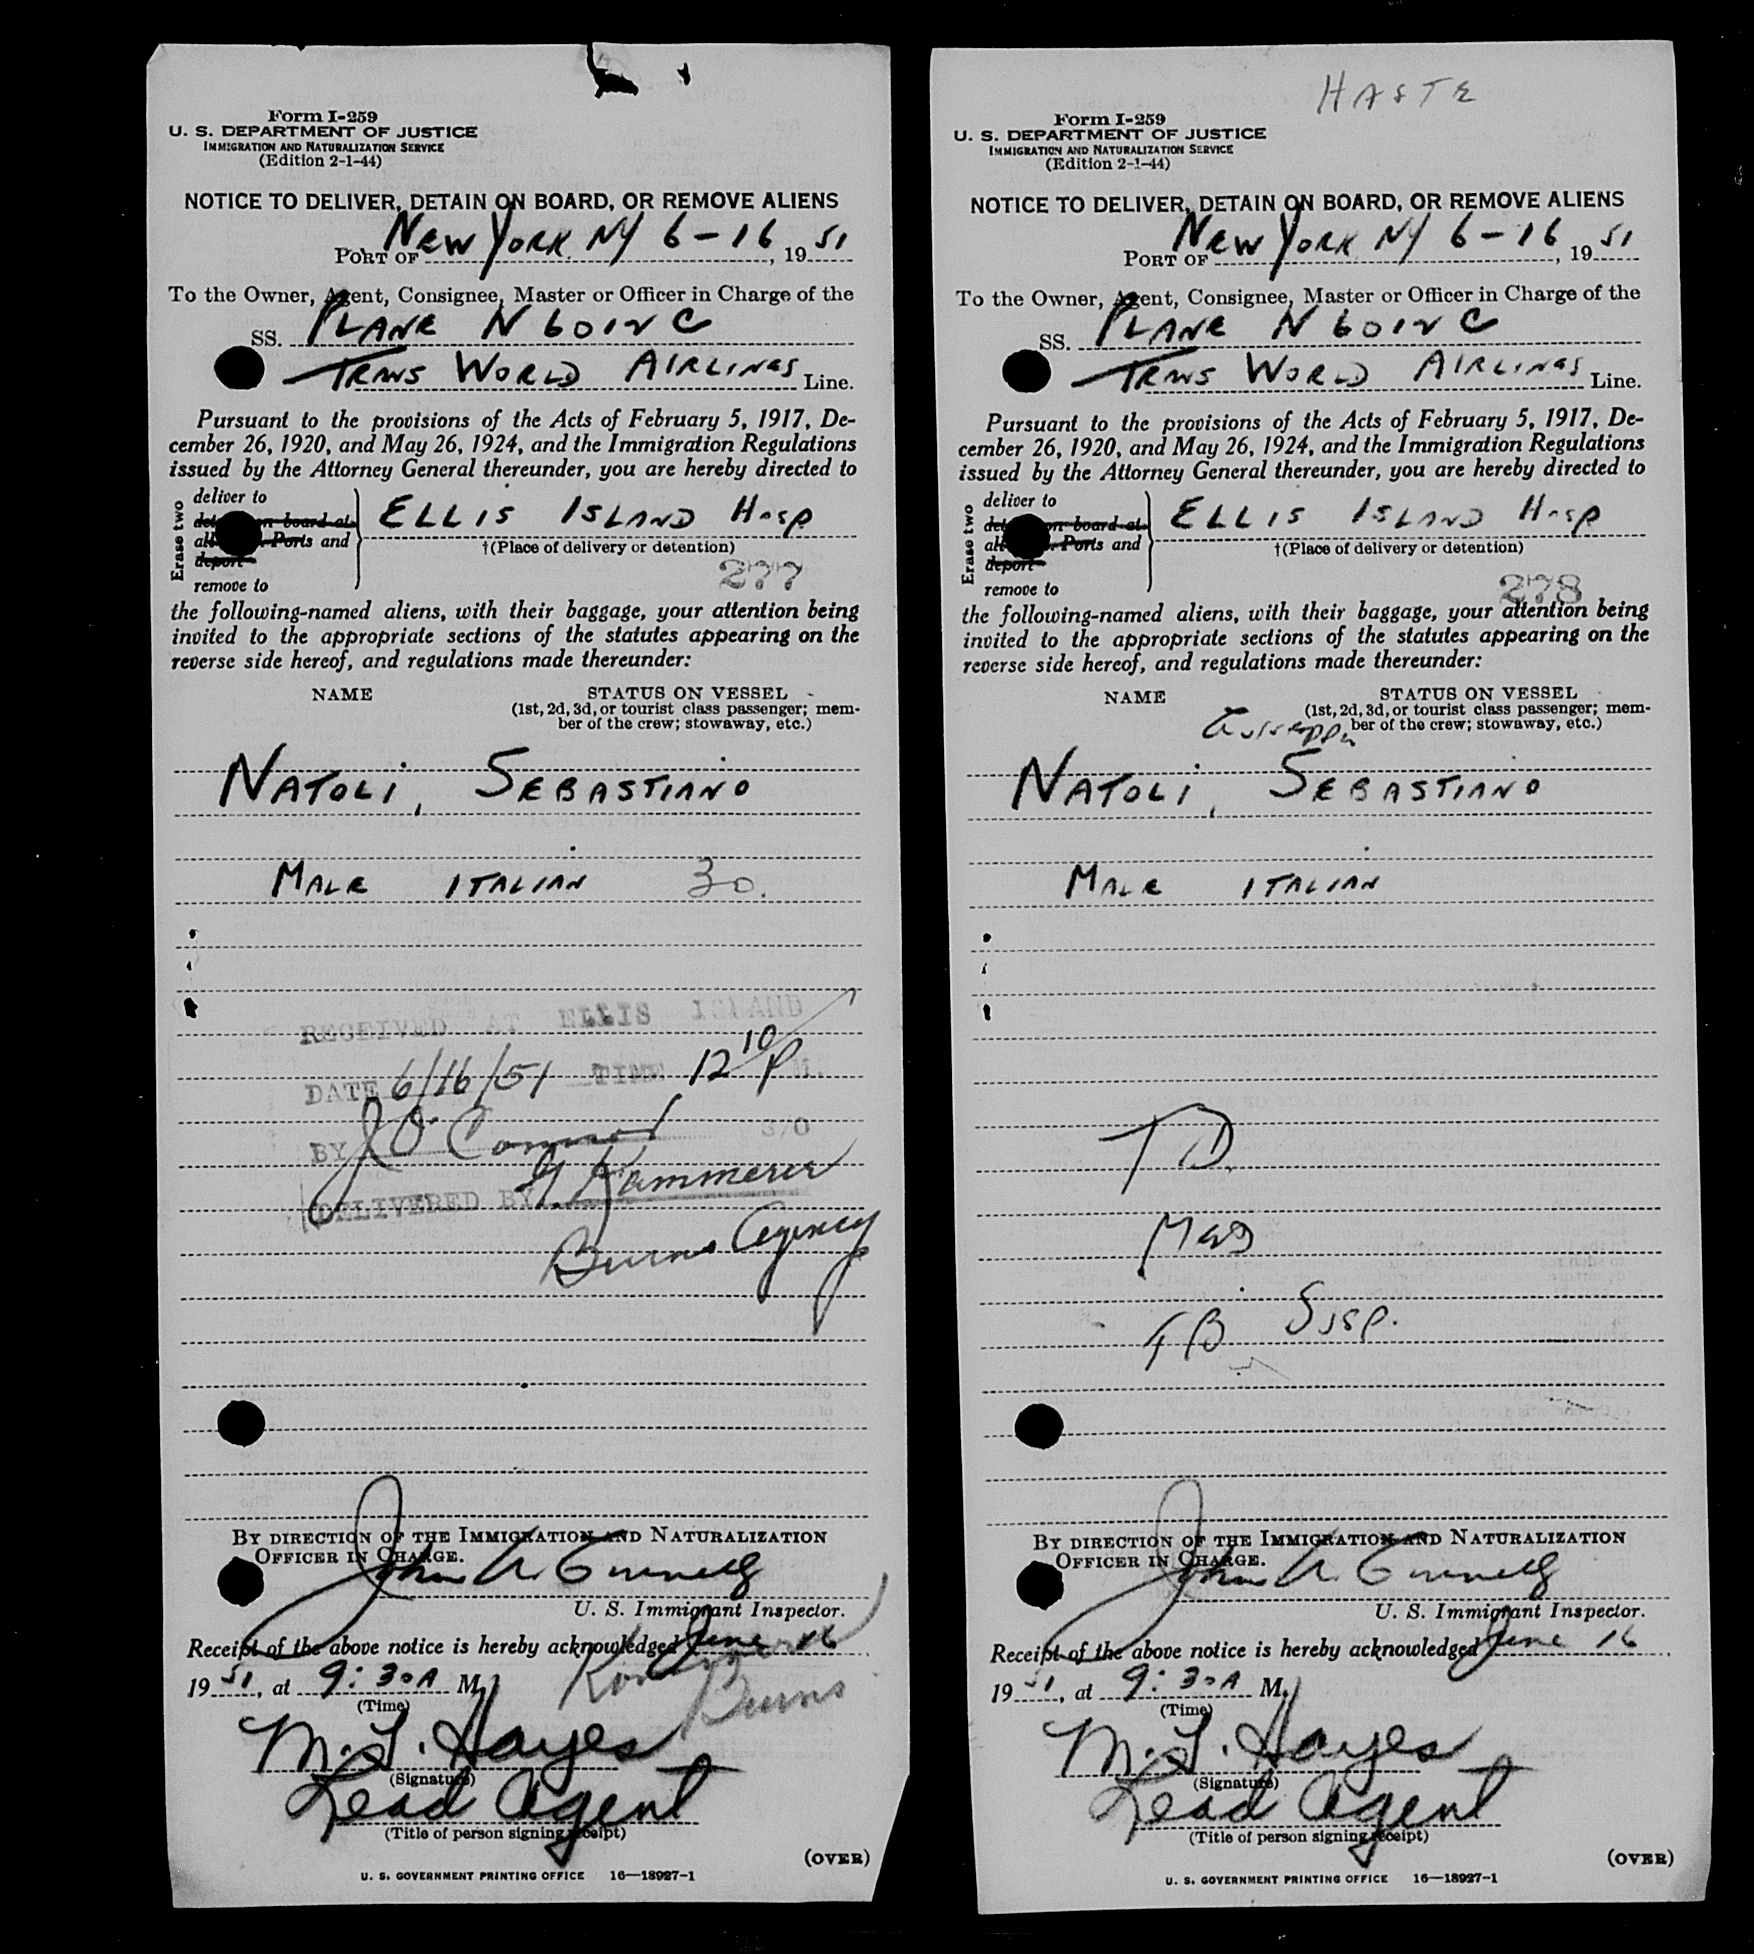 Form I-259
U. S. DEPARTMENT OF JUSTICE
IMMIGRATION AND NATURALIZATION SERVICE
(Edition 2-1-44)
NOTICE TO DELIVER, DETAIN ON BOARD, OR REMOVE ALIENS
PORT OF NEW YORK NY 6-16, 19 51
To the Owner, Agent, Consignee, Master or Officer in Charge of the
SS. PLANE N 6012 C
TRANS WORLD AIRLINES Line.
Pursuant to the provisions of the Acts of February 5, 1917, De-
cember 26, 1920, and May 26, 1924, and the Immigration Regulations
issued by the Attorney General thereunder, you are hereby directed to
Erase two
deliver to
on board at
Ports and
deport
remove to
ELLIS ISLAND HOSP
†(Place of delivery or detention)
277
the following-named aliens, with their baggage, your attention being
invited to the appropriate sections of the statutes appearing on the
reverse side hereof, and regulations made thereunder:
NAME STATUS ON VESSEL
(1st, 2d, 3d, or tourist class passenger; mem-
ber of the crew; stowaway, etc.)
NATOLI, SEBASTIANO
MALE ITALIAN 30.
RECEIVED AT ELLIS ISLAND
DATE 6/16/51 TIME 12 10 P M.
BY J O'Connor S/O
DELIVERED BY Kammerer
Burns Agency
BY DIRECTION OF THE IMMIGRATION AND NATURALIZATION
OFFICER IN CHARGE.
John A.
U. S. Immigrant Inspector.
Receipt of the above notice is hereby acknowledged June 16
19 51, at 9:30 A M.
(Time)
Burns
M. J. Hayes
(Signature)
Lead Agent
(Title of person signing receipt)
(OVER)
U. S. GOVERNMENT PRINTING OFFICE 16—18927-1
HASTE
Form I-259
U. S. DEPARTMENT OF JUSTICE
IMMIGRATION AND NATURALIZATION SERVICE
(Edition 2-1-44)
NOTICE TO DELIVER, DETAIN ON BOARD, OR REMOVE ALIENS
PORT OF NEW YORK NY 6-16, 19 51
To the Owner, Agent, Consignee, Master or Officer in Charge of the
SS. PLANE N 6012 C
TRANS WORLD AIRLINES Line.
Pursuant to the provisions of the Acts of February 5, 1917, De-
cember 26, 1920, and May 26, 1924, and the Immigration Regulations
issued by the Attorney General thereunder, you are hereby directed to
Erase two
deliver to
on board at
Ports and
deport
remove to
ELLIS ISLAND HOSP
†(Place of delivery or detention)
278
the following-named aliens, with their baggage, your attention being
invited to the appropriate sections of the statutes appearing on the
reverse side hereof, and regulations made thereunder:
NAME STATUS ON VESSEL
(1st, 2d, 3d, or tourist class passenger; mem-
ber of the crew; stowaway, etc.)
NATOLI, SEBASTIANO
MALE ITALIAN
TD
TB Susp.
BY DIRECTION OF THE IMMIGRATION AND NATURALIZATION
OFFICER IN CHARGE.
John A.
U. S. Immigrant Inspector.
Receipt of the above notice is hereby acknowledged June 16
19 51, at 9:30 A M.
(Time)
M. J. Hayes
(Signature)
Lead Agent
(Title of person signing receipt)
(OVER)
U. S. GOVERNMENT PRINTING OFFICE 16—18927-1